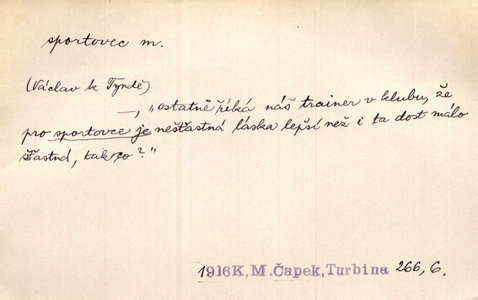 sportovec m.
(Václav k Tyndě)
—, „ostatně říká náš trainer v klubu, že
pro sportovce je nešťastná láska lepší než i ta dost málo
šťastná, tak co?"
1916K, M. Čapek, Turbina 266, 6.